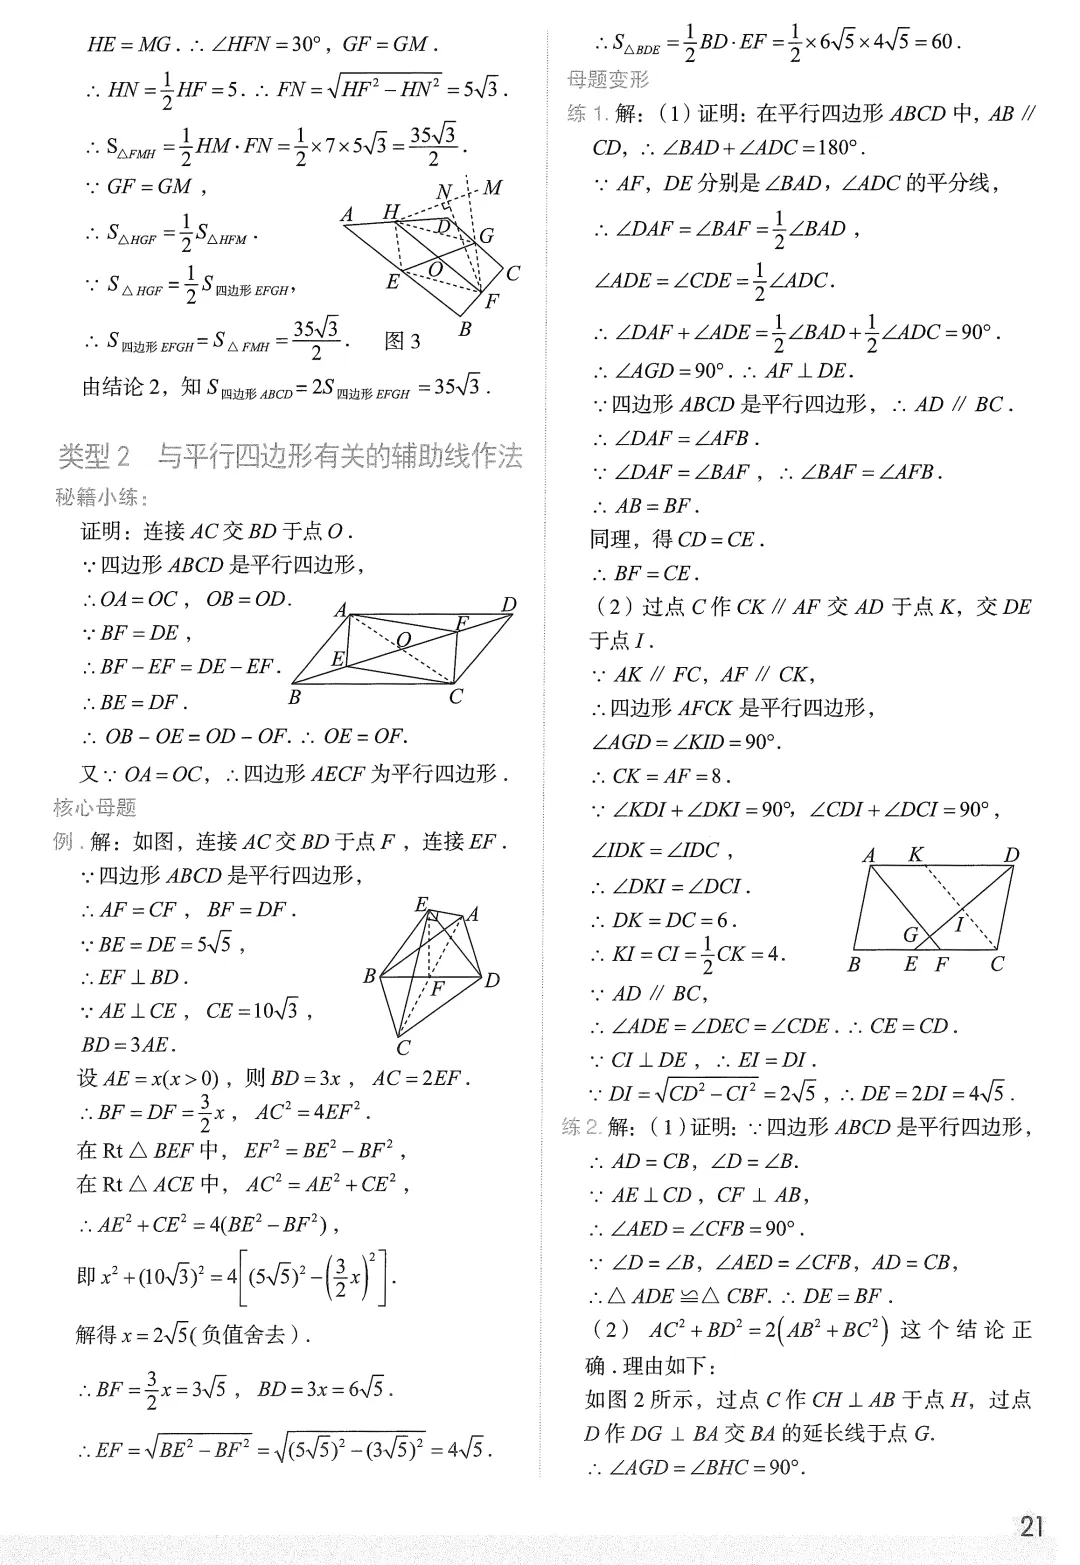 HE = MG . ∴ ∠HFN = 30° , GF = GM .
∴ HN = 1/2 HF = 5 . ∴ FN = √(HF² − HN²) = 5√3 .
∴ S△FMH = 1/2 HM · FN = 1/2 × 7 × 5√3 = 35√3/2 .
∵ GF = GM ,
∴ S△HGF = 1/2 S△HFM .
∵ S△HGF = 1/2 S四边形EFGH,
∴ S四边形EFGH = S△FMH = 35√3/2 .
A H N M D G E O C F B
图 3
由结论 2，知 S四边形ABCD = 2S四边形EFGH = 35√3 .
类型 2 与平行四边形有关的辅助线作法
秘籍小练：
证明：连接 AC 交 BD 于点 O .
∵四边形 ABCD 是平行四边形，
∴OA = OC ， OB = OD.
∵ BF = DE ，
∴BF − EF = DE − EF .
∴BE = DF .
A D F O E B C
∴ OB − OE = OD − OF. ∴ OE = OF.
又∵ OA = OC，∴四边形 AECF 为平行四边形 .
核心母题
例 . 解：如图，连接 AC 交 BD 于点 F ，连接 EF .
∵四边形 ABCD 是平行四边形，
∴AF = CF ， BF = DF .
∵BE = DE = 5√5 ，
∴EF ⊥ BD .
∵AE ⊥ CE ， CE = 10√3 ，
BD = 3AE .
E A B F D C
设 AE = x(x > 0) ，则 BD = 3x ， AC = 2EF .
∴BF = DF = 3/2 x ， AC² = 4EF² .
在 Rt △ BEF 中， EF² = BE² − BF² ，
在 Rt △ ACE 中， AC² = AE² + CE² ，
∴AE² + CE² = 4(BE² − BF²) ，
即 x² + (10√3)² = 4[(5√5)² − (3/2 x)²] .
解得 x = 2√5 ( 负值舍去 ) .
∴BF = 3/2 x = 3√5 ， BD = 3x = 6√5 .
∴EF = √(BE² − BF²) = √((5√5)² − (3√5)²) = 4√5 .
∴S△BDE = 1/2 BD · EF = 1/2 × 6√5 × 4√5 = 60 .
母题变形
练 1. 解：（1）证明：在平行四边形 ABCD 中，AB ∥
CD，∴ ∠BAD + ∠ADC = 180° .
∵ AF，DE 分别是 ∠BAD，∠ADC 的平分线，
∴ ∠DAF = ∠BAF = 1/2 ∠BAD ，
∠ADE = ∠CDE = 1/2 ∠ADC.
∴ ∠DAF + ∠ADE = 1/2 ∠BAD + 1/2 ∠ADC = 90° .
∴ ∠AGD = 90° . ∴ AF ⊥ DE.
∵四边形 ABCD 是平行四边形，∴ AD ∥ BC .
∴ ∠DAF = ∠AFB .
∵ ∠DAF = ∠BAF ，∴ ∠BAF = ∠AFB .
∴ AB = BF .
同理，得 CD = CE .
∴ BF = CE .
（2）过点 C 作 CK ∥ AF 交 AD 于点 K，交 DE
于点 I .
∵ AK ∥ FC，AF ∥ CK，
∴四边形 AFCK 是平行四边形，
∠AGD = ∠KID = 90°.
∴ CK = AF = 8 .
∵ ∠KDI + ∠DKI = 90°，∠CDI + ∠DCI = 90° ，
∠IDK = ∠IDC ，
∴ ∠DKI = ∠DCI .
∴ DK = DC = 6 .
∴ KI = CI = 1/2 CK = 4.
A K D G I B E F C
∵ AD ∥ BC，
∴ ∠ADE = ∠DEC = ∠CDE . ∴ CE = CD .
∵ CI ⊥ DE ，∴ EI = DI .
∵ DI = √(CD² − CI²) = 2√5 ，∴ DE = 2DI = 4√5 .
练 2. 解：（1）证明：∵四边形 ABCD 是平行四边形，
∴ AD = CB，∠D = ∠B.
∵ AE ⊥ CD ，CF ⊥ AB，
∴ ∠AED = ∠CFB = 90° .
∵ ∠D = ∠B，∠AED = ∠CFB，AD = CB，
∴△ ADE ≌△ CBF. ∴ DE = BF .
（2） AC² + BD² = 2(AB² + BC²) 这 个 结 论 正
确 . 理由如下：
如图 2 所示，过点 C 作 CH ⊥ AB 于点 H，过点
D 作 DG ⊥ BA 交 BA 的延长线于点 G.
∴ ∠AGD = ∠BHC = 90°.
21